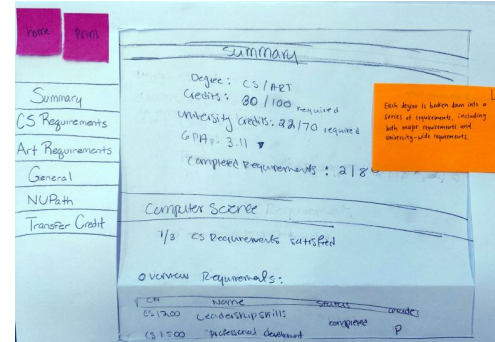 Home
Print
Summary
CS Requirements
Art Requirements
General
NUPath
Transfer Credit
Summary
Degree: CS/ART
Credits: 80/100 required
University Credits: 22/70 required
GPA: 3.11
Completed Requirements: 2/8
Each degree is broken down into a
series of requirements, including
both major requirements and
university-wide requirements.
Computer Science
1/3 CS Requirements satisfied
Overview Requirements:
Name Status Grade
CS 1200 Leadership skills
completed
CS 1500 Professional P